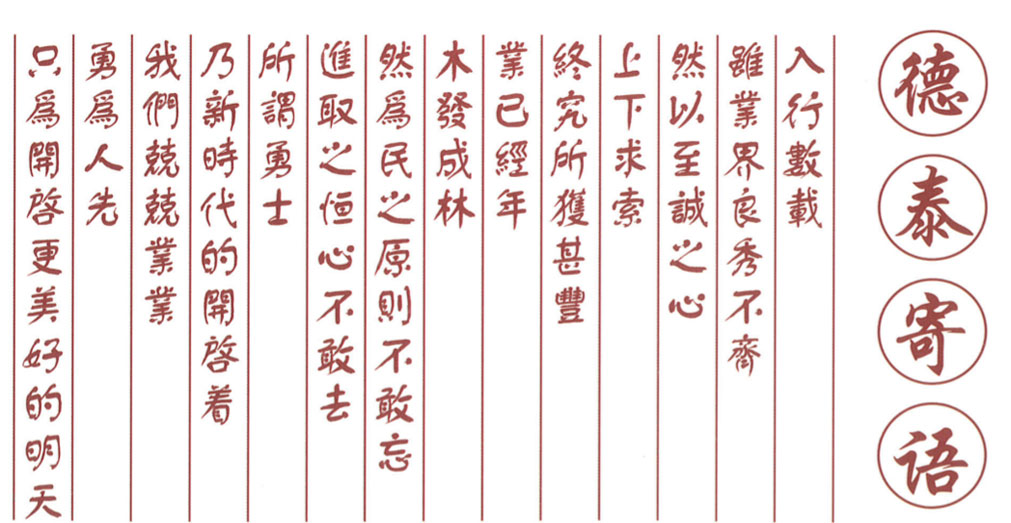 德泰寄语
入行數載
雖業界良秀不齊
然以至誠之心
上下求索
終究所獲甚豐
業已經年
木發成林
然爲民之原則不敢忘
進取之恒心不敢去
所謂勇士
乃新時代的開啓着
我們兢兢業業
勇爲人先
只爲開啓更美好的明天